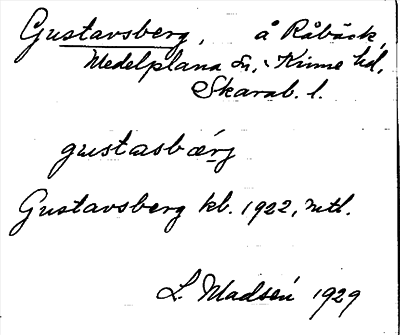 Gustavsberg, å Råbäck,
Medelplana sn, Kinne hd,
Skarab. l.
gustasbærj
Gustavsberg kb. 1922, mtl.
L. Madsén 1929